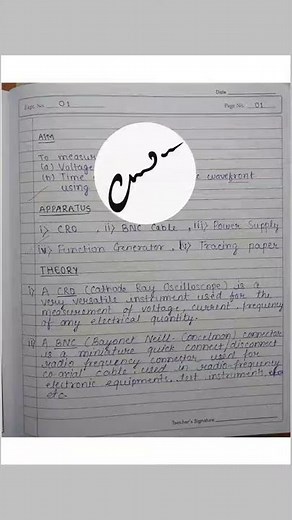 Date
Expt. No. 01
Page No. 01
AIM
To measure
(a) Voltage
(b) Time wavefront
using
APPARATUS
i) CRO, ii) BNC Cable, iii) Power Supply
iv) Function Generator, v) Tracing paper
THEORY
i) A CRO (Cathode Ray Oscilloscope) is a
very versatile instrument used for the
measurement of voltage, current, frequency
of any electrical quantity.
ii) A BNC (Bayonet Neill-Concelman) connector
is a miniature quick connect/disconnect
radio frequency connector used for
co-axial cable, used in radio-frequency
electronic equipments, test instruments,
etc.
Teacher's Signature